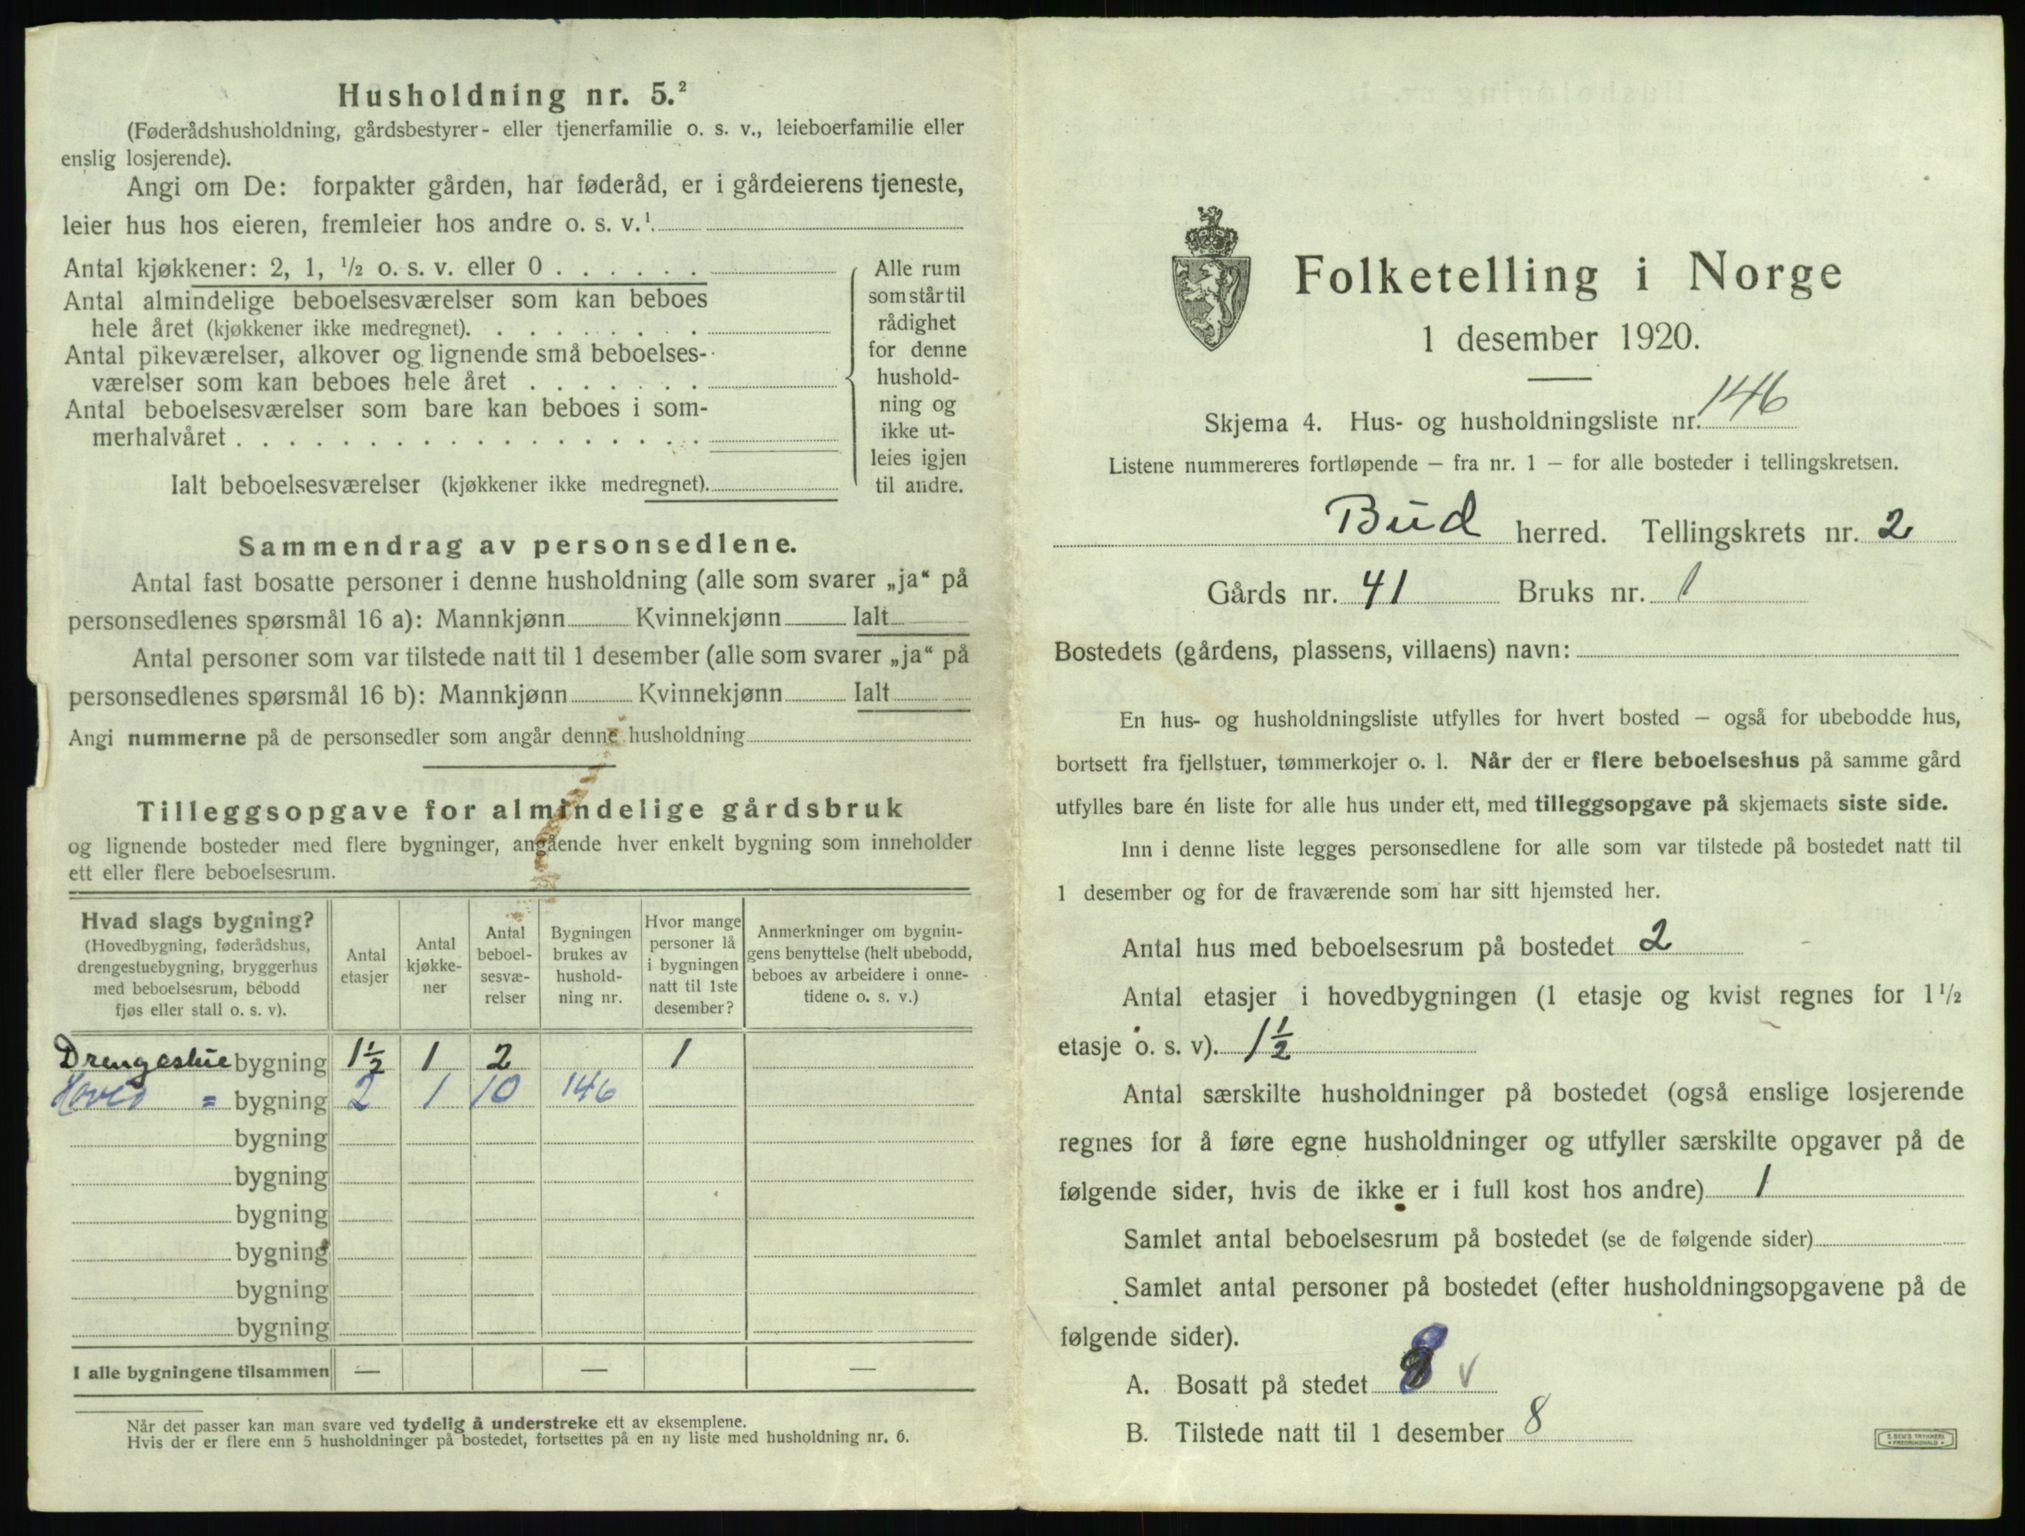 Husholdning nr. 5.²
(Føderådshusholdning, gårdsbestyrer- eller tjenerfamilie o. s. v., leieboerfamilie eller
enslig losjerende).
Angi om De: forpakter gården, har føderåd, er i gårdeierens tjeneste,
leier hus hos eieren, fremleier hos andre o. s. v.¹.
Antal kjøkkener: 2, 1, ½ o. s. v. eller 0 . . . . . .
Antal almindelige beboelsesværelser som kan beboes
hele året (kjøkkener ikke medregnet). . . . . . . . .
Antal pikeværelser, alkover og lignende små beboelses-
værelser som kan beboes hele året . . . . . . .
Antal beboelsesværelser som bare kan beboes i som-
merhalvåret . . . . . . . . . . . . . . . . . .
Ialt beboelsesværelser (kjøkkener ikke medregnet).
Alle rum
som står til
rådighet
for denne
hushold-
ning og
ikke ut-
leies igjen
til andre.
Sammendrag av personsedlene.
Antal fast bosatte personer i denne husholdning (alle som svarer „ja“ på
personsedlenes spørsmål 16 a): Mannkjønn Kvinnekjønn Ialt
Antal personer som var tilstede natt til 1 desember (alle som svarer „ja“ på
personsedlenes spørsmål 16 b): Mannkjønn Kvinnekjønn Ialt
Angi nummerne på de personsedler som angår denne husholdning
Tilleggsopgave for almindelige gårdsbruk
og lignende bosteder med flere bygninger, angående hver enkelt bygning som inneholder
ett eller flere beboelsesrum.
Hvad slags bygning?
(Hovedbygning, føderådshus,
drengestuebygning, bryggerhus
med beboelsesrum, bebodd
fjøs eller stall o. s. v).
Antal
etasjer
Antal
kjøkke-
ner
Antal
beboel-
sesvæ-
relser
Bygningen
brukes av
hushold-
ning nr.
Hvor mange
personer lå
i bygningen
natt til 1ste
desember?
Anmerkninger om bygnin-
gens benyttelse (helt ubebodd,
beboes av arbeidere i onne-
tidene o. s. v.)
Drengestue bygning 1½ 1 2 1
Hoved = bygning 2 1 10 146
bygning
bygning
bygning
bygning
bygning
bygning
I alle bygningene tilsammen — — —
Når det passer kan man svare ved tydelig å understreke ett av eksemplene.
Hvis der er flere enn 5 husholdninger på bostedet, fortsettes på en ny liste med husholdning nr. 6.
Folketelling i Norge
1 desember 1920.
Skjema 4. Hus- og husholdningsliste nr. 146
Listene nummereres fortløpende – fra nr. 1 – for alle bosteder i tellingskretsen.
Bud herred. Tellingskrets nr. 2
Gårds nr. 41 Bruks nr. 1
Bostedets (gårdens, plassens, villaens) navn:
En hus- og husholdningsliste utfylles for hvert bosted – også for ubebodde hus,
bortsett fra fjellstuer, tømmerkojer o. l. Når der er flere beboelseshus på samme gård
utfylles bare én liste for alle hus under ett, med tilleggsopgave på skjemaets siste side.
Inn i denne liste legges personsedlene for alle som var tilstede på bostedet natt til
1 desember og for de fraværende som har sitt hjemsted her.
Antal hus med beboelsesrum på bostedet 2
Antal etasjer i hovedbygningen (1 etasje og kvist regnes for 1½
etasje o. s. v). 1½
Antal særskilte husholdninger på bostedet (også enslige losjerende
regnes for å føre egne husholdninger og utfyller særskilte opgaver på de
følgende sider, hvis de ikke er i full kost hos andre) 1
Samlet antal beboelsesrum på bostedet (se de følgende sider)
Samlet antal personer på bostedet (efter husholdningsopgavene på de
følgende sider).
A. Bosatt på stedet 8 v
B. Tilstede natt til 1 desember 8